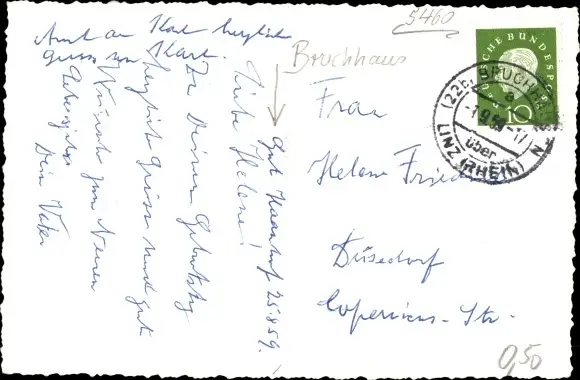 5460
Bruchhaus
DEUTSCHE BUNDESPOST
10
(22b) BRUCHHAUSEN
a
-1.9.59.-17
über
LINZ (RHEIN)
Frau
Helene
Düsseldorf
Copernicus-Str.
0,50
25.8.59.
Liebe Helene!
Zu Deinem Geburtstag
herzliche Grüsse und gute
Wünsche zum Neuen
Lebensjahr
Dein Vater
Auch an Karl herzliche
Grüsse von
Karl.